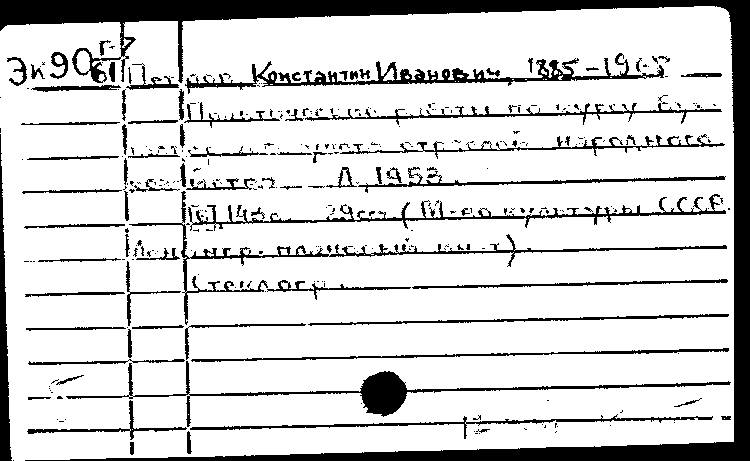 Эк90 Г-7/61 Петров, Константин Иванович, 1885-19
Практические работы по курсу бух-
учета отраслей народного
хозяйства. Л., 1953.
29 см (М-во культуры СССР.
Ленингр. плановый ин-т).
Стеклогр.
12